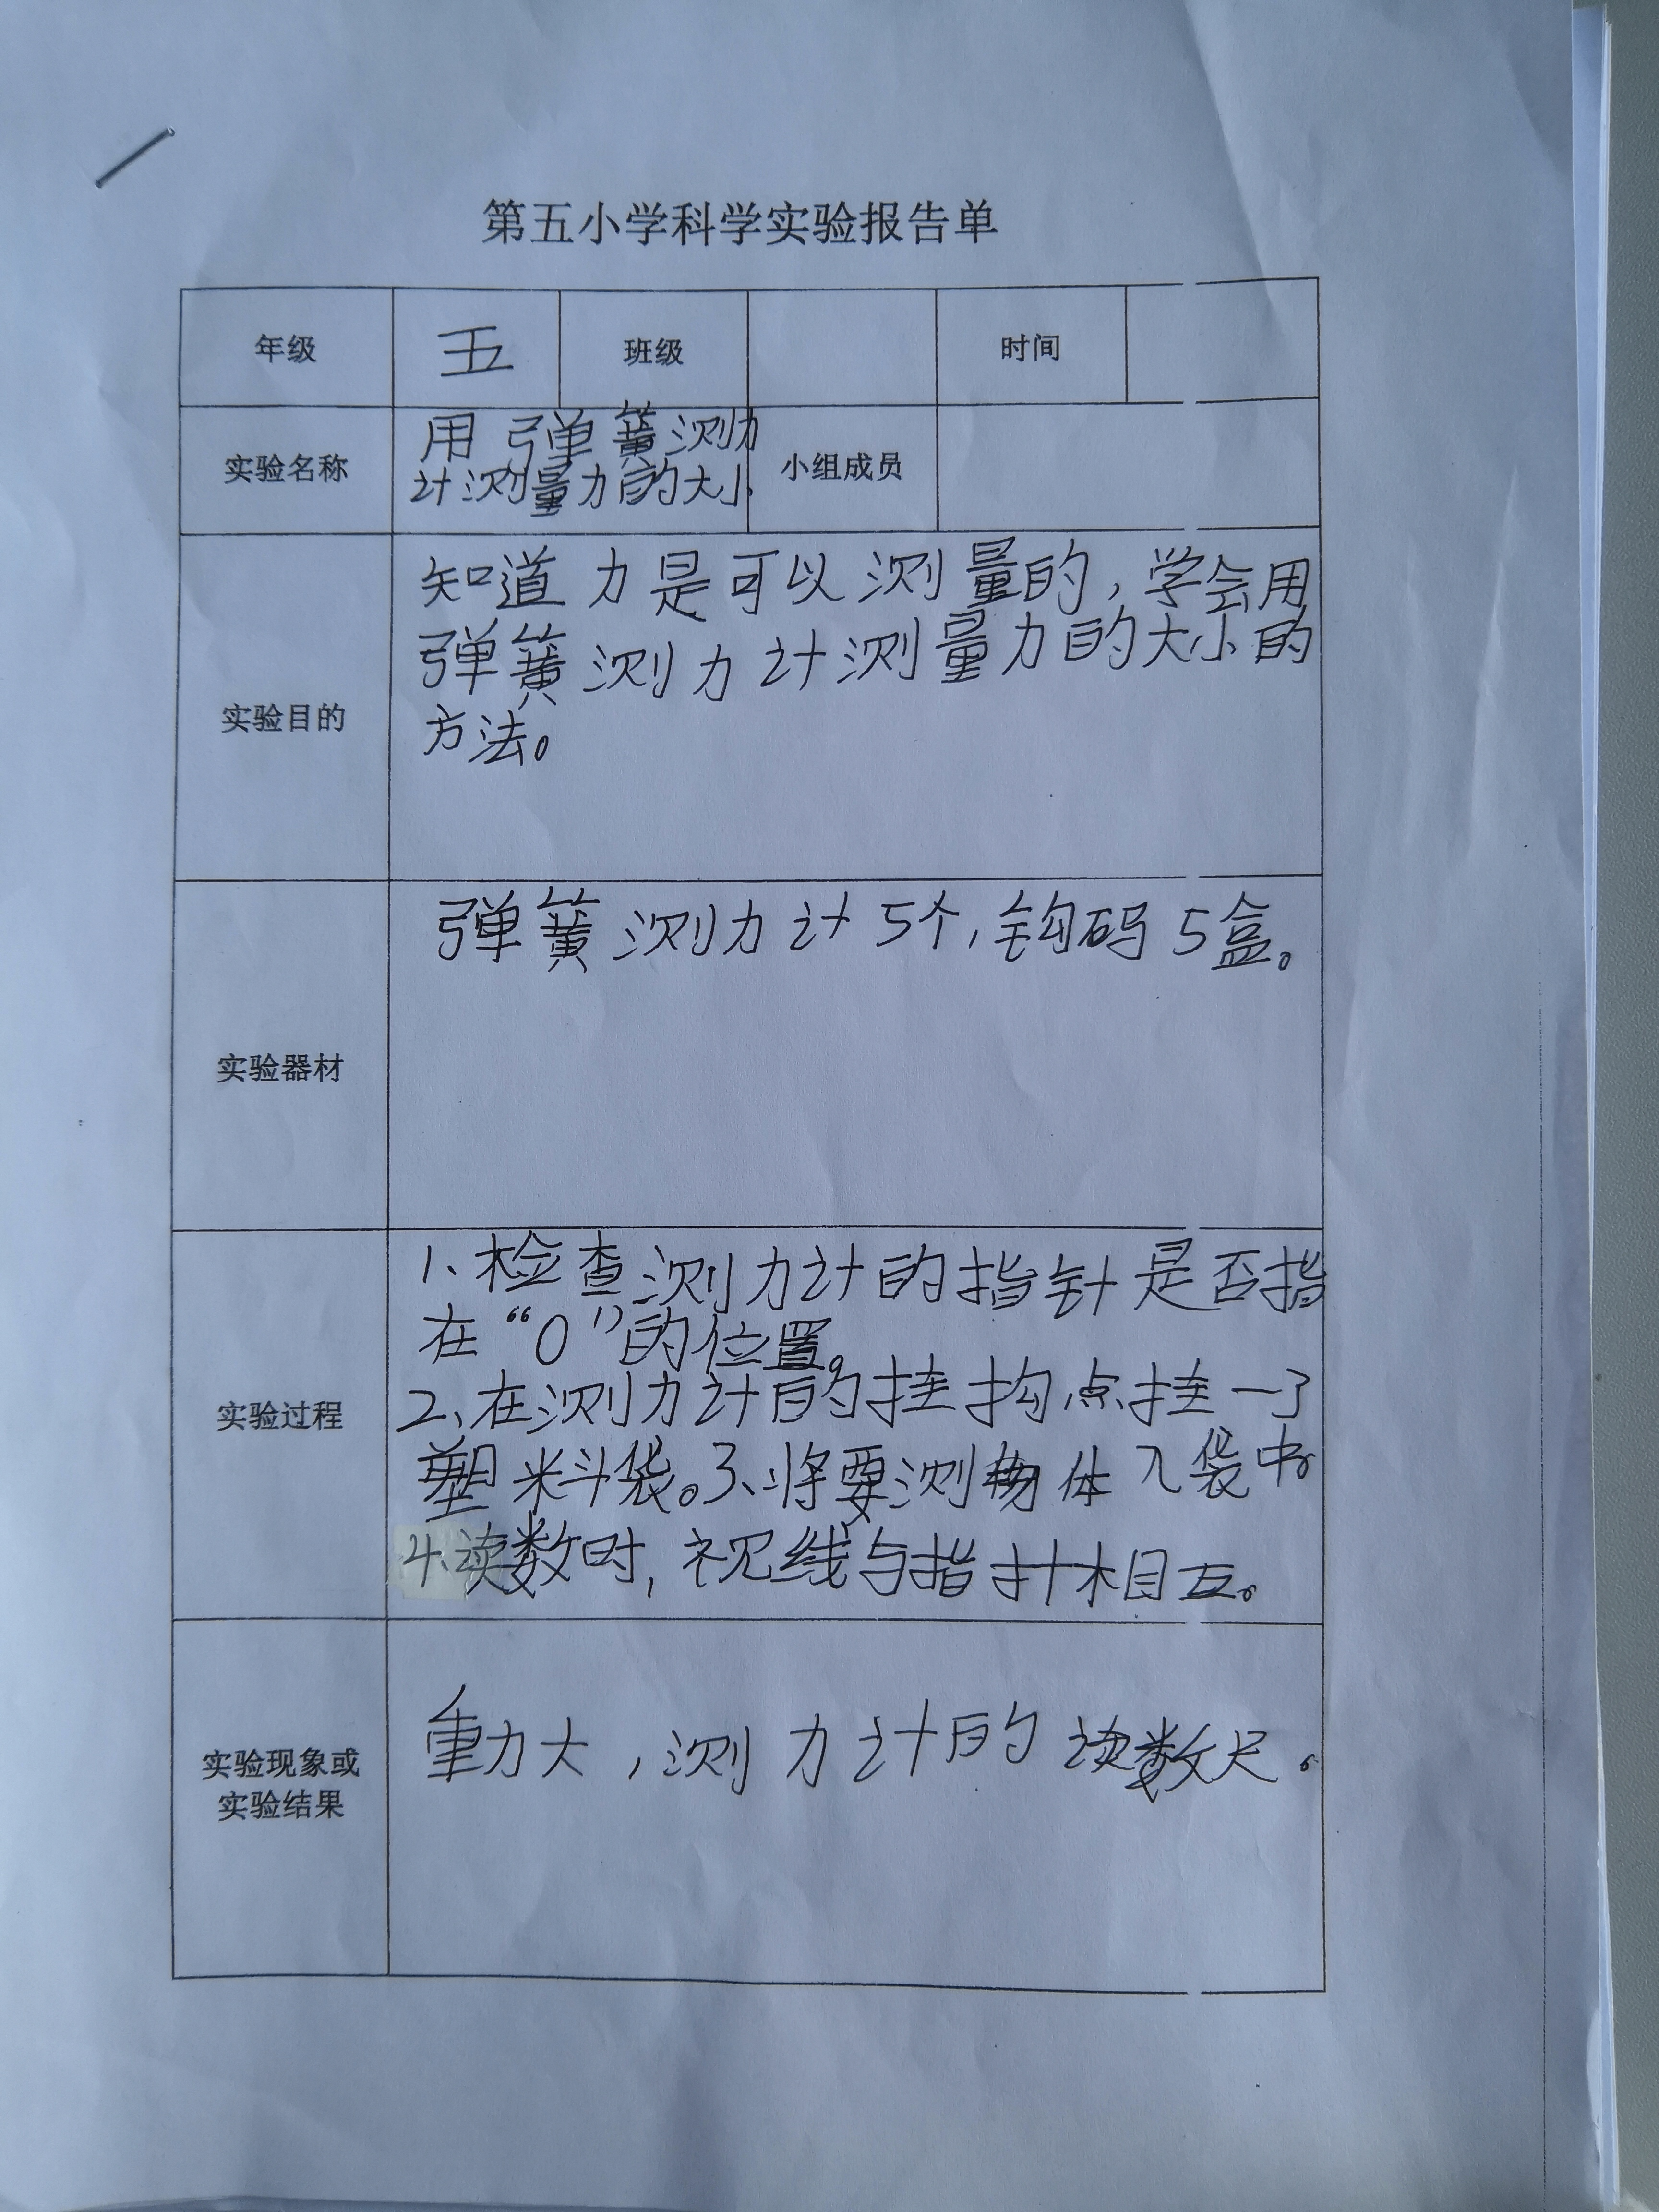 第五小学科学实验报告单
年级 五 班级 时间
实验名称 用弹簧测力
计测量力的大小 小组成员
实验目的 知道力是可以测量的,学会用
弹簧测力计测量力的大小的
方法。
实验器材 弹簧测力计5个,钩码5盒。
实验过程 1、检查测力计的指针是否指
在“0”的位置。
2、在测力计的挂构点挂一了
塑料袋。3、将要测物体入袋中。
4.读数时,视线与指针相互。
实验现象或
实验结果 重力大,测力计的读数尺。